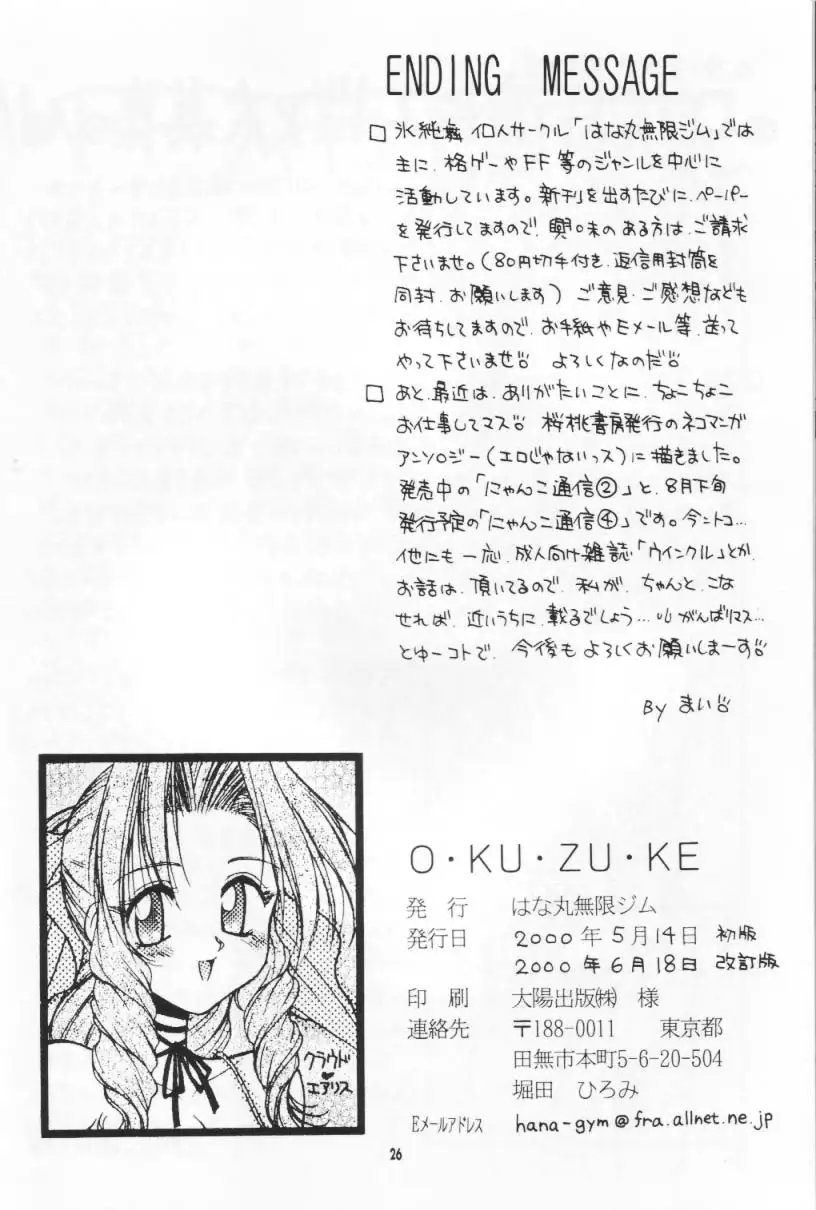 ENDING MESSAGE
□ 氷純姦 個人サークル「はな丸無限ジム」では
主に、格ゲーやFF等のジャンルを中心に
活動しています。新刊を出すたびに、ペーパー
を発行してますので、興味のある方は、ご請求
下さいませ。(80円切手付き、返信用封筒を
同封、お願いします) ご意見・ご感想なども
お待ちしてますので、お手紙やEメール等、送って
やって下さいませ よろしくなのだ
□ あと、最近は、ありがたいことに、ちょこちょこ
お仕事してマス 桜桃書房発行のネコマンガ
アンソロジー(エロじゃないっス)に描きました。
発売中の「にゃんこ通信②」と、8月下旬
発行予定の「にゃんこ通信④」です。今ントコ…
他にも一応、成人向け雑誌「ウインクル」とか、
お話は、頂いてるので、私が、ちゃんと、こな
せれば、近いうちに、載るでしょう… がんばリマス…
とゆーコトで、今後もよろしくお願いしまーす
By まい
クラウド
♥
エアリス
O・KU・ZU・KE
発 行 はな丸無限ジム
発行日 2000年5月14日 初版
2000年6月18日 改訂版
印 刷 大陽出版㈱ 様
連絡先 〒188-0011 東京都
田無市本町5-6-20-504
堀田 ひろみ
Eメールアドレス hana-gym@fra.allnet.ne.jp
26